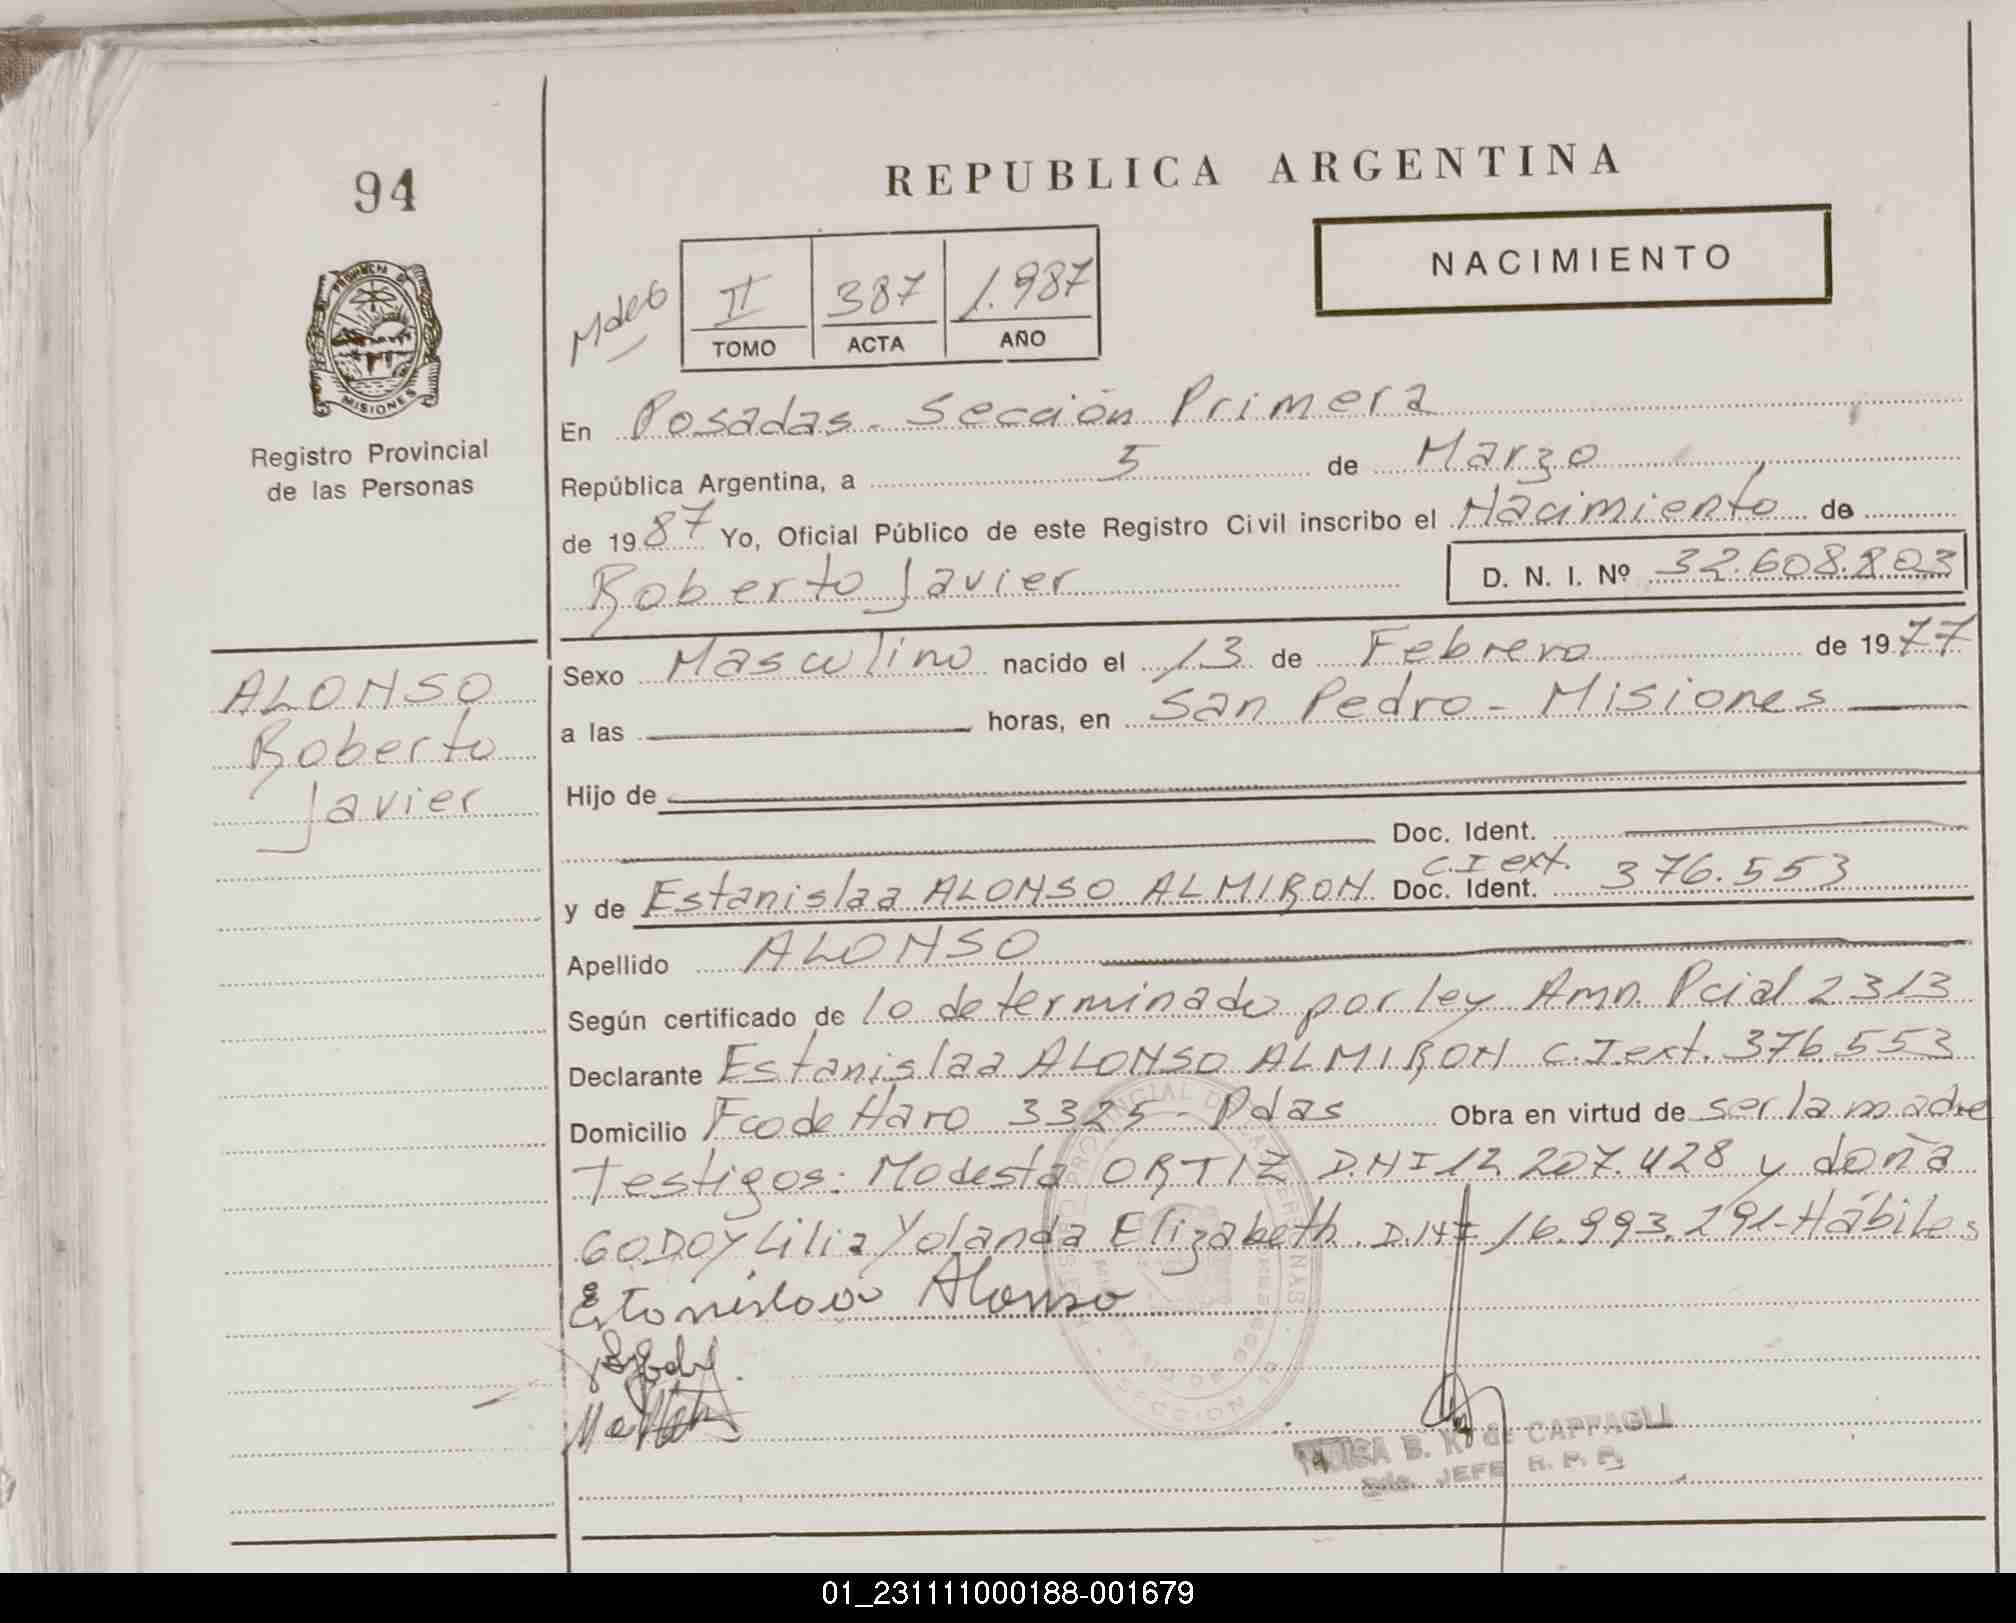 94
REPUBLICA ARGENTINA
NACIMIENTO
II 387 1.987
TOMO ACTA AÑO
PROVINCIA DE
MISIONES
Registro Provincial
de las Personas
En Posadas - Sección Primera
República Argentina, a 5 de Marzo
de 1987 Yo, Oficial Público de este Registro Civil inscribo el Nacimiento de
Roberto Javier D. N. I. Nº 32.608.803
ALONSO
Roberto
Javier
Sexo Masculino nacido el 13 de Febrero de 1977
a las horas, en San Pedro - Misiones
Hijo de
Doc. Ident.
y de Estanislaa ALONSO ALMIRON Doc. Ident. C.I ext. 376.553
Apellido ALONSO
Según certificado de lo determinado por ley Amn. Pcial 2313
Declarante Estanislaa ALONSO ALMIRON C.I ext. 376.553
Domicilio Fco de Haro 3325 - Pdas Obra en virtud de ser la madre
Testigos: Modesta ORTIZ D.N.I 12.207.428 y doña
GODOY Lilia Yolanda Elizabeth. D.N.I 16.993.291 - Hábiles
Estanislaa Alonso
B. K. de CAPPAGLI
JEFE R. P. P.
01_231111000188-001679